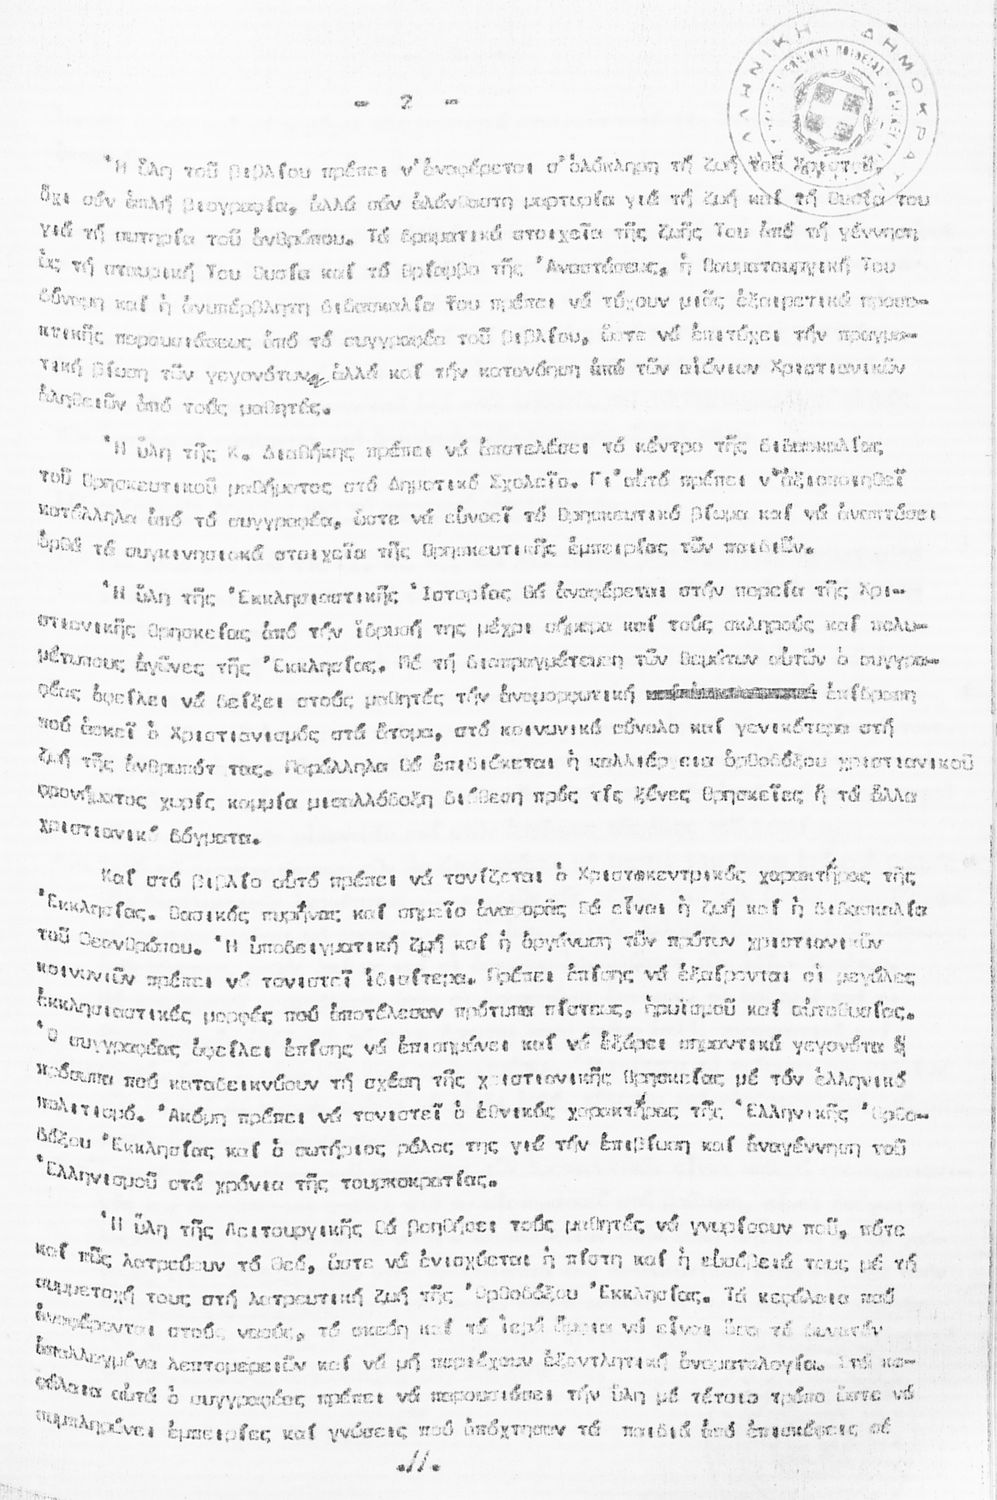 - 2 -
ΕΛΛΗΝΙΚΗ ΔΗΜΟΚΡΑΤΙΑ
Ἡ ὕλη τοῦ βιβλίου πρέπει ν'ἀναφέρεται σ'ὁλόκληρη τή ζωή τοῦ Χριστοῦ,
ὄχι σάν ἁπλή βιογραφία, ἀλλά σάν ἀλάνθαστη μαρτυρία γιά τή ζωή καί τή θυσία του
γιά τή σωτηρία τοῦ ἀνθρώπου. Τά δραματικά στοιχεῖα τῆς ζωῆς Του ἀπό τή γέννηση
ὡς τή σταυρική Του θυσία καί τό θρίαμβο τῆς Ἀναστάσεως, ἡ θαυματουργική Του
δύναμη καί ἡ ἀνυπέρβλητη διδασκαλία Του πρέπει νά τύχουν μιᾶς ἐξαιρετικά προσε-
κτικῆς παρουσιάσεως ἀπό τό συγγραφέα τοῦ βιβλίου, ὥστε νά ἐπιτύχει τήν πραγμα-
τική βίωση τῶν γεγονότων, ἀλλά καί τήν κατανόηση ἀπό τῶν αἰώνιων Χριστιανικῶν
ἀληθειῶν ἀπό τούς μαθητές.
Ἡ ὕλη τῆς Κ. Διαθήκης πρέπει νά ἀποτελέσει τό κέντρο τῆς διδασκαλίας
τοῦ θρησκευτικοῦ μαθήματος στό Δημοτικό Σχολεῖο. Γι'αὐτό πρέπει ν'ἀξιοποιηθεῖ
κατάλληλα ἀπό τό συγγραφέα, ὥστε νά εὐνοεῖ τό θρησκευτικό βίωμα καί νά ἀναπτύσει
ὀρθά τά συγκινησιακά στοιχεῖα τῆς θρησκευτικῆς ἐμπειρίας τῶν παιδιῶν.
Ἡ ὕλη τῆς Ἐκκλησιαστικῆς Ἱστορίας θά ἀναφέρεται στήν πορεία τῆς Χρι-
στιανικῆς θρησκείας ἀπό τήν ἵδρυσή της μέχρι σήμερα καί τούς σκληρούς καί πολυ-
μέτωπους ἀγῶνες τῆς Ἐκκλησίας. Μέ τή διαπραγμάτευση τῶν θεμάτων αὐτῶν ὁ συγγρα-
φέας ὀφείλει νά δείξει στούς μαθητές τήν ἀναμορφωτική ἐπίδραση
πού ἀσκεῖ ὁ Χριστιανισμός στά ἄτομα, στό κοινωνικό σύνολο καί γενικότερα στή
ζωή τῆς ἀνθρωπότ τας. Παράλληλα θά ἐπιδιώκεται ἡ καλλιέργεια ὀρθοδόξου χριστιανικοῦ
φρονήματος χωρίς καμμία μισαλλόδοξη διάθεση πρός τίς ξένες θρησκεῖες ἤ τά ἄλλα
χριστιανικά δόγματα.
Καί στό βιβλίο αὐτό πρέπει νά τονίζεται ὁ Χριστοκεντρικός χαρακτήρας τῆς
Ἐκκλησίας. Βασικός πυρήνας καί σημεῖο ἀναφορᾶς θά εἶναι ἡ ζωή καί ἡ διδασκαλία
τοῦ Θεανθρώπου. Ἡ ὑποδειγματική ζωή καί ἡ ὀργάνωση τῶν πρώτων χριστιανικῶν
κοινωνιῶν πρέπει νά τονιστεῖ ἰδιαίτερα. Πρέπει ἐπίσης νά ἐξαίρονται οἱ μεγάλες
ἐκκλησιαστικές μορφές πού ἀποτέλεσαν πρότυπα πίστεως, ἡρωϊσμοῦ καί αὐτοθυσίας.
Ὁ συγγραφέας ὀφείλει ἐπίσης νά ἐπισημάνει καί νά ἐξάρει σημαντικά γεγονότα ἤ
πρόσωπα πού καταδεικνύουν τή σχέση τῆς χριστιανικῆς θρησκείας μέ τόν ἑλληνικό
πολιτισμό. Ἀκόμη πρέπει νά τονιστεῖ ὁ ἐθνικός χαρακτήρας τῆς Ἑλληνικῆς Ὀρθο-
δόξου Ἐκκλησίας καί ὁ σωτήριος ρόλος της γιά τήν ἐπιβίωση καί ἀναγέννηση τοῦ
Ἑλληνισμοῦ στά χρόνια τῆς τουρκοκρατίας.
Ἡ ὕλη τῆς Λειτουργικῆς θά βοηθήσει τούς μαθητές νά γνωρίσουν ποῦ, πότε
καί πῶς λατρεύουν τό Θεό, ὥστε νά ἐνισχύεται ἡ πίστη καί ἡ εὐσέβειά τους μέ τή
συμμετοχή τους στή λατρευτική ζωή τῆς Ὀρθοδόξου Ἐκκλησίας. Τά κεφάλαια πού
ἀναφέρονται στούς ναούς, τά σκεύη καί τά ἱερά ἄμφια νά εἶναι ὅσο τό δυνατόν
ἀπαλλαγμένα λεπτομερειῶν καί νά μή περιέχουν ἐξαντλητική ὀνοματολογία. Στά κε-
φάλαια αὐτά ὁ συγγραφέας πρέπει νά παρουσιάσει τήν ὕλη μέ τέτοιο τρόπο ὥστε νά
συμπληρώνει ἐμπειρίες καί γνώσεις πού ἀπόχτησαν τά παιδιά ἀπό ἐπισκέψεις σέ
.//.